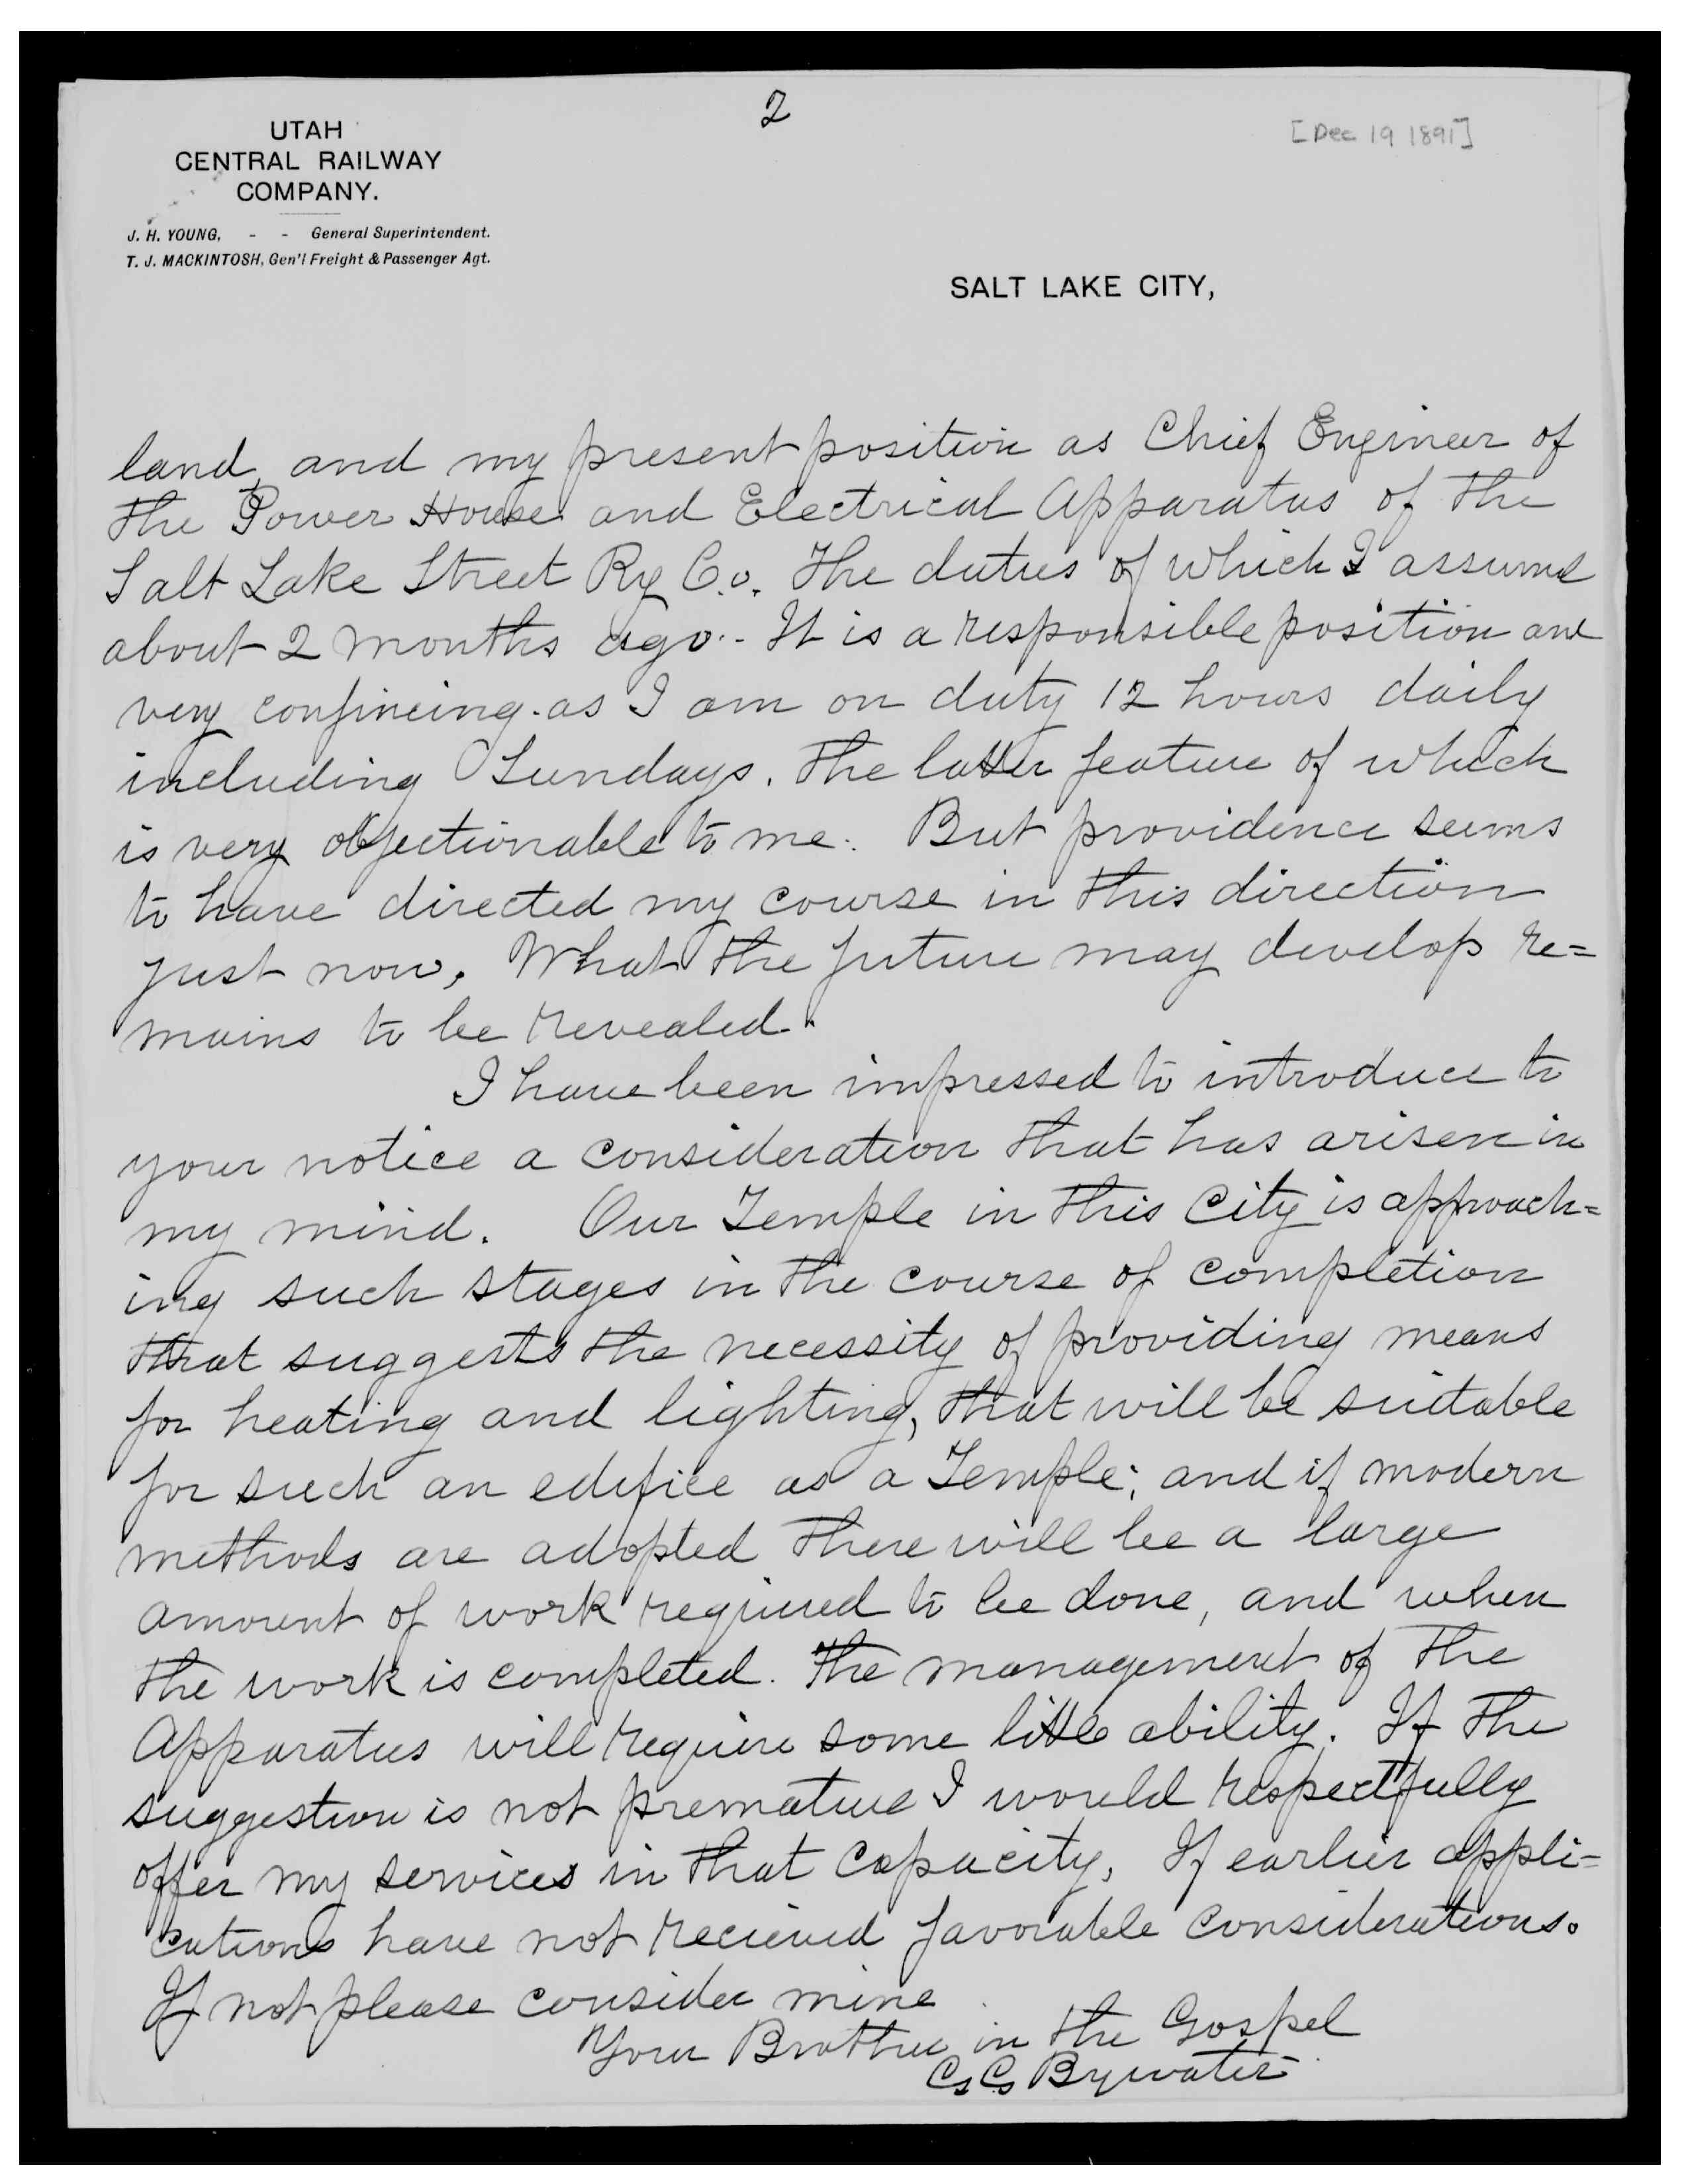 2
[Dec 19 1891]
UTAH
CENTRAL RAILWAY
COMPANY.
J. H. YOUNG, - - General Superintendent.
T. J. MACKINTOSH, Gen'l Freight & Passenger Agt.
SALT LAKE CITY,
land, and my present position as Chief Engineer of
the Power House and Electrical Apparatus of the
Salt Lake Street Ry Co. The duties of which I assumed
about 2 months ago.- It is a responsible position and
very confineing. as I am on duty 12 hours daily
including Sundays. The latter feature of which
is very objectionable to me. But providence seems
to have directed my course in this direction
just now, What the future may develop re=
mains to be revealed.
I have been impressed to introduce to
your notice a consideration that has arisen in
my mind. Our Temple in this City is approach=
ing such stages in the course of completion
that suggests the necessity of providing means
for heating and lighting, that will be suitable
for such an edifice as a Temple; and if modern
methods are adopted there will be a large
amount of work required to be done, and when
the work is completed. The management of the
Apparatus will require some little ability. If the
suggestion is not premature I would respectfully
offer my services in that capacity, If earlier appli=
cations have not recieved favorable considerations.
If not please consider mine
Your Brother in the Gospel
Bywater